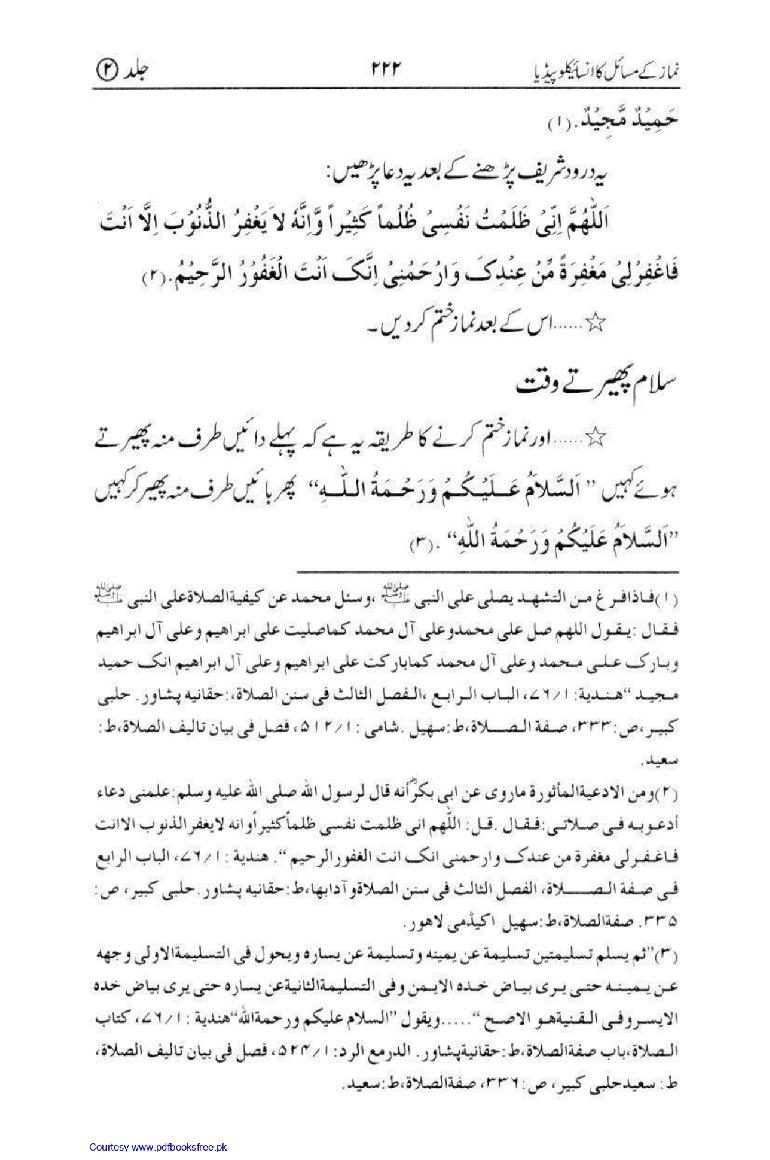 نماز کے مسائل کا انسائیکلوپیڈیا ۲۲۲ جلد ②
حَمِيْدٌ مَّجِيْدٌ.(۱)
یہ درود شریف پڑھنے کے بعد یہ دعا پڑھیں:
اَللّٰهُمَّ اِنِّیْ ظَلَمْتُ نَفْسِیْ ظُلْماً کَثِیْراً وَّاِنَّهُ لاَ یَغْفِرُ الذُّنُوْبَ اِلَّا اَنْتَ
فَاغْفِرْلِیْ مَغْفِرَةً مِّنْ عِنْدِکَ وَارْحَمْنِیْ اِنَّکَ اَنْتَ الْغَفُوْرُ الرَّحِیْمُ.(۲)
☆......اس کے بعد نماز ختم کر دیں۔
سلام پھیرتے وقت
☆......اور نماز ختم کرنے کا طریقہ یہ ہے کہ پہلے دائیں طرف منہ پھیرتے
ہوئے کہیں ”اَلسَّلاَمُ عَلَیْکُمْ وَرَحْمَةُ اللّٰهِ“ پھر بائیں طرف منہ پھیر کر کہیں
”اَلسَّلاَمُ عَلَیْکُمْ وَرَحْمَةُ اللّٰهِ“ .(۳)
(۱)فاذافرغ من التشهد یصلی علی النبی ﷺ ،وسئل محمد عن کیفیةالصلاةعلی النبی ﷺ
فقال :یقول اللهم صل علی محمدوعلی آل محمد کماصلیت علی ابراهیم وعلی آل ابراهیم
وبارک علی محمد وعلی آل محمد کمابارکت علی ابراهیم وعلی آل ابراهیم انک حمید
مجید “هندیة: ۷۶/۱، الباب الرابع ،الفصل الثالث فی سنن الصلاة،:حقانیه پشاور. حلبی
کبیر،ص:۳۳۳، صفة الصلاة،ط:سهیل .شامی :۵۱۲/۱، فصل فی بیان تالیف الصلاة،ط:
سعید.
(۲)ومن الادعیةالمأثورة ماروی عن ابی بکرؓأنه قال لرسول الله صلی الله علیه وسلم:علمنی دعاء
أدعوبه فی صلاتی:فقال .قل: اللهم انی ظلمت نفسی ظلماًکثیراًوانه لایغفرالذنوب الاانت
فاغفرلی مغفرة من عندک وارحمنی انک انت الغفورالرحیم “. هندیة :۷۶/۱، الباب الرابع
فی صفة الصلاة، الفصل الثالث فی سنن الصلاةوآدابها،ط:حقانیه پشاور.حلبی کبیر، ص:
۳۳۵. صفةالصلاة،ط:سهیل اکیڈمی لاهور.
(۳)”ثم یسلم تسلیمتین تسلیمة عن یمینه وتسلیمة عن یساره ویحول فی التسلیمةالاولی وجهه
عن یمینه حتی یری بیاض خده الایمن وفی التسلیمةالثانیةعن یساره حتی یری بیاض خده
الایسروفی القنیةهو الاصح “.....ویقول ”السلام علیکم ورحمةالله“هندیة :۷۶/۱، کتاب
الصلاة،باب صفةالصلاة،ط:حقانیةپشاور. الدرمع الرد:۵۲۴/۱، فصل فی بیان تالیف الصلاة،
ط: سعیدحلبی کبیر، ص:۳۳۶، صفةالصلاة،ط:سعید.
Courtesy www.pdfbooksfree.pk